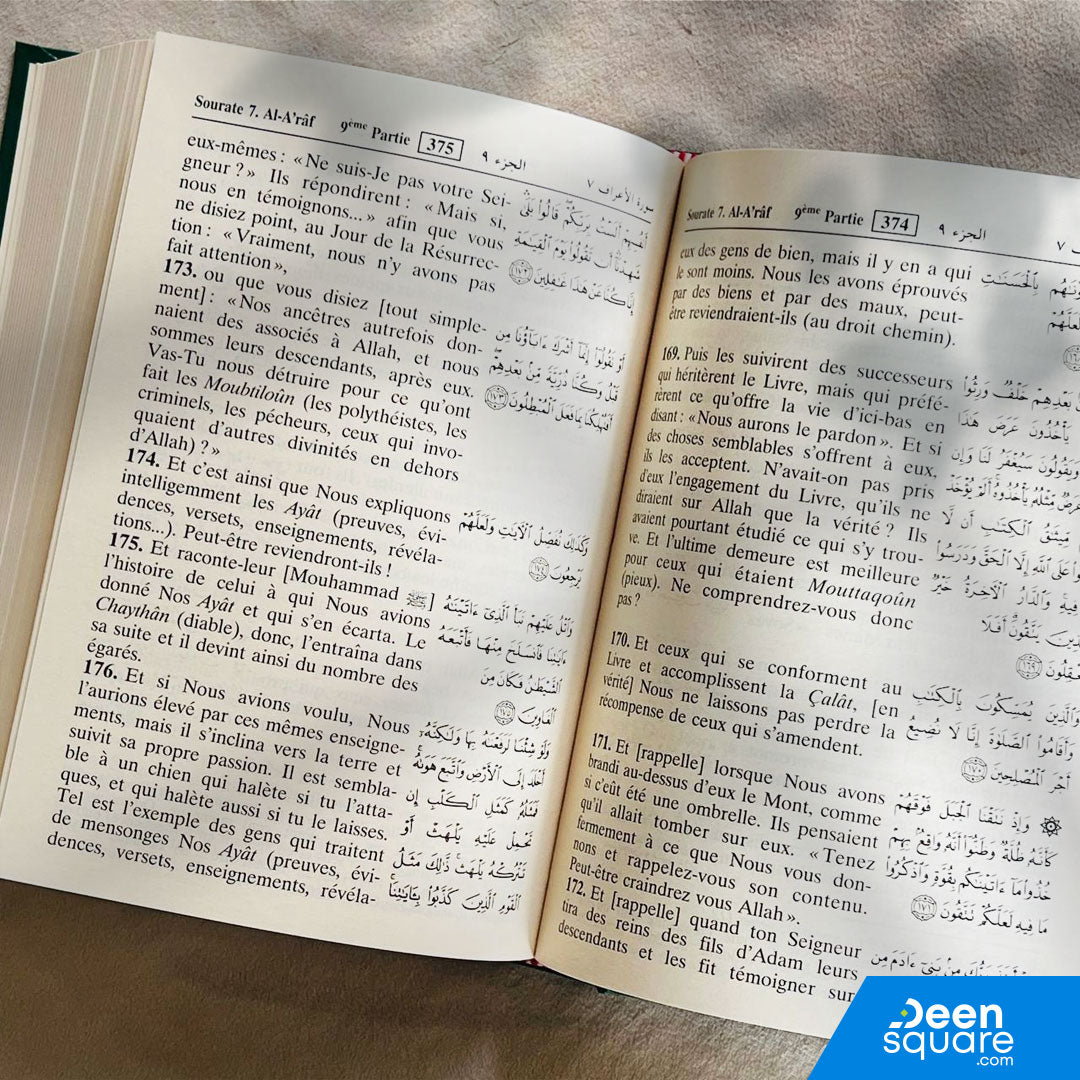 Sourate 7. Al-A'râf 9ème Partie 374 الجزء ٩
eux des gens de bien, mais il y en a qui
le sont moins. Nous les avons éprouvés
par des biens et par des maux, peut-
être reviendraient-ils (au droit chemin).
بِٱلْحَسَنَٰتِ
169. Puis les suivirent des successeurs
qui héritèrent le Livre, mais qui préfé-
rèrent ce qu'offre la vie d'ici-bas en
disant : « Nous aurons le pardon ». Et si
des choses semblables s'offrent à eux,
ils les acceptent. N'avait-on pas pris
d'eux l'engagement du Livre, qu'ils ne
diraient sur Allah que la vérité ? Ils
avaient pourtant étudié ce qui s'y trou-
ve. Et l'ultime demeure est meilleure
pour ceux qui étaient Mouttaqoûn
(pieux). Ne comprendrez-vous donc
pas ?
بَعْدِهِمْ خَلْفٌ وَرِثُوا۟
يَأْخُذُونَ عَرَضَ هَٰذَا
وَيَقُولُونَ سَيُغْفَرُ لَنَا وَإِن
مِّثْلُهُۥ يَأْخُذُوهُ أَلَمْ يُؤْخَذْ
مِّيثَٰقُ ٱلْكِتَٰبِ أَن لَّا
عَلَى ٱللَّهِ إِلَّا ٱلْحَقَّ وَدَرَسُوا۟
فِيهِ وَٱلدَّارُ ٱلْءَاخِرَةُ خَيْرٌ
يَتَّقُونَ أَفَلَا
١٦٩
170. Et ceux qui se conforment au
Livre et accomplissent la Çalât, [en
vérité] Nous ne laissons pas perdre la
récompense de ceux qui s'amendent.
وَٱلَّذِينَ يُمَسِّكُونَ بِٱلْكِتَٰبِ
وَأَقَامُوا۟ ٱلصَّلَوٰةَ إِنَّا لَا نُضِيعُ
أَجْرَ ٱلْمُصْلِحِينَ ١٧٠
171. Et [rappelle] lorsque Nous avons
brandi au-dessus d'eux le Mont, comme
si c'eût été une ombrelle. Ils pensaient
qu'il allait tomber sur eux. « Tenez
fermement à ce que Nous vous don-
nons et rappelez-vous son contenu.
Peut-être craindrez vous Allah ».
۞ وَإِذْ نَتَقْنَا ٱلْجَبَلَ فَوْقَهُمْ
كَأَنَّهُۥ ظُلَّةٌ وَظَنُّوٓا۟ أَنَّهُۥ وَاقِعٌۢ بِهِمْ
خُذُوا۟ مَآ ءَاتَيْنَٰكُم بِقُوَّةٍ وَٱذْكُرُوا۟
مَا فِيهِ لَعَلَّكُمْ تَتَّقُونَ ١٧١
172. Et [rappelle] quand ton Seigneur
tira des reins des fils d'Adam leurs
descendants et les fit témoigner sur
مِنۢ بَنِىٓ ءَادَمَ مِن
Sourate 7. Al-A'râf 9ème Partie 375 الجزء ٩ سورة الأعراف ٧
eux-mêmes : « Ne suis-Je pas votre Sei-
gneur ? » Ils répondirent : « Mais si,
nous en témoignons... » afin que vous
ne disiez point, au Jour de la Résurrec-
tion : « Vraiment, nous n'y avons pas
fait attention »,
أَنفُسِهِمْ أَلَسْتُ بِرَبِّكُمْ قَالُوا۟ بَلَىٰ
شَهِدْنَآ أَن تَقُولُوا۟ يَوْمَ ٱلْقِيَٰمَةِ
إِنَّا كُنَّا عَنْ هَٰذَا غَٰفِلِينَ ١٧٢
173. ou que vous disiez [tout simple-
ment] : « Nos ancêtres autrefois don-
naient des associés à Allah, et nous
sommes leurs descendants, après eux.
Vas-Tu nous détruire pour ce qu'ont
fait les Moubtiloûn (les polythéistes, les
criminels, les pécheurs, ceux qui invo-
quaient d'autres divinités en dehors
d'Allah) ? »
أَوْ تَقُولُوٓا۟ إِنَّمَآ أَشْرَكَ ءَابَآؤُنَا مِن
قَبْلُ وَكُنَّا ذُرِّيَّةً مِّنۢ بَعْدِهِمْ
أَفَتُهْلِكُنَا بِمَا فَعَلَ ٱلْمُبْطِلُونَ ١٧٣
174. Et c'est ainsi que Nous expliquons
intelligemment les Ayât (preuves, évi-
dences, versets, enseignements, révéla-
tions...). Peut-être reviendront-ils !
وَكَذَٰلِكَ نُفَصِّلُ ٱلْءَايَٰتِ وَلَعَلَّهُمْ
يَرْجِعُونَ ١٧٤
175. Et raconte-leur [Mouhammad ﷺ]
l'histoire de celui à qui Nous avions
donné Nos Ayât et qui s'en écarta. Le
Chaythân (diable), donc, l'entraîna dans
sa suite et il devint ainsi du nombre des
égarés.
وَٱتْلُ عَلَيْهِمْ نَبَأَ ٱلَّذِىٓ ءَاتَيْنَٰهُ
ءَايَٰتِنَا فَٱنسَلَخَ مِنْهَا فَأَتْبَعَهُ
ٱلشَّيْطَٰنُ فَكَانَ مِنَ
ٱلْغَاوِينَ ١٧٥
176. Et si Nous avions voulu, Nous
l'aurions élevé par ces mêmes enseigne-
ments, mais il s'inclina vers la terre et
suivit sa propre passion. Il est sembla-
ble à un chien qui halète si tu l'atta-
ques, et qui halète aussi si tu le laisses.
Tel est l'exemple des gens qui traitent
de mensonges Nos Ayât (preuves, évi-
dences, versets, enseignements, révéla-
وَلَوْ شِئْنَا لَرَفَعْنَٰهُ بِهَا وَلَٰكِنَّهُۥٓ
أَخْلَدَ إِلَى ٱلْأَرْضِ وَٱتَّبَعَ هَوَىٰهُ
فَمَثَلُهُۥ كَمَثَلِ ٱلْكَلْبِ إِن
تَحْمِلْ عَلَيْهِ يَلْهَثْ أَوْ
تَتْرُكْهُ يَلْهَث ذَّٰلِكَ مَثَلُ
ٱلْقَوْمِ ٱلَّذِينَ كَذَّبُوا۟ بِـَٔايَٰتِنَا
Deen
square
.com